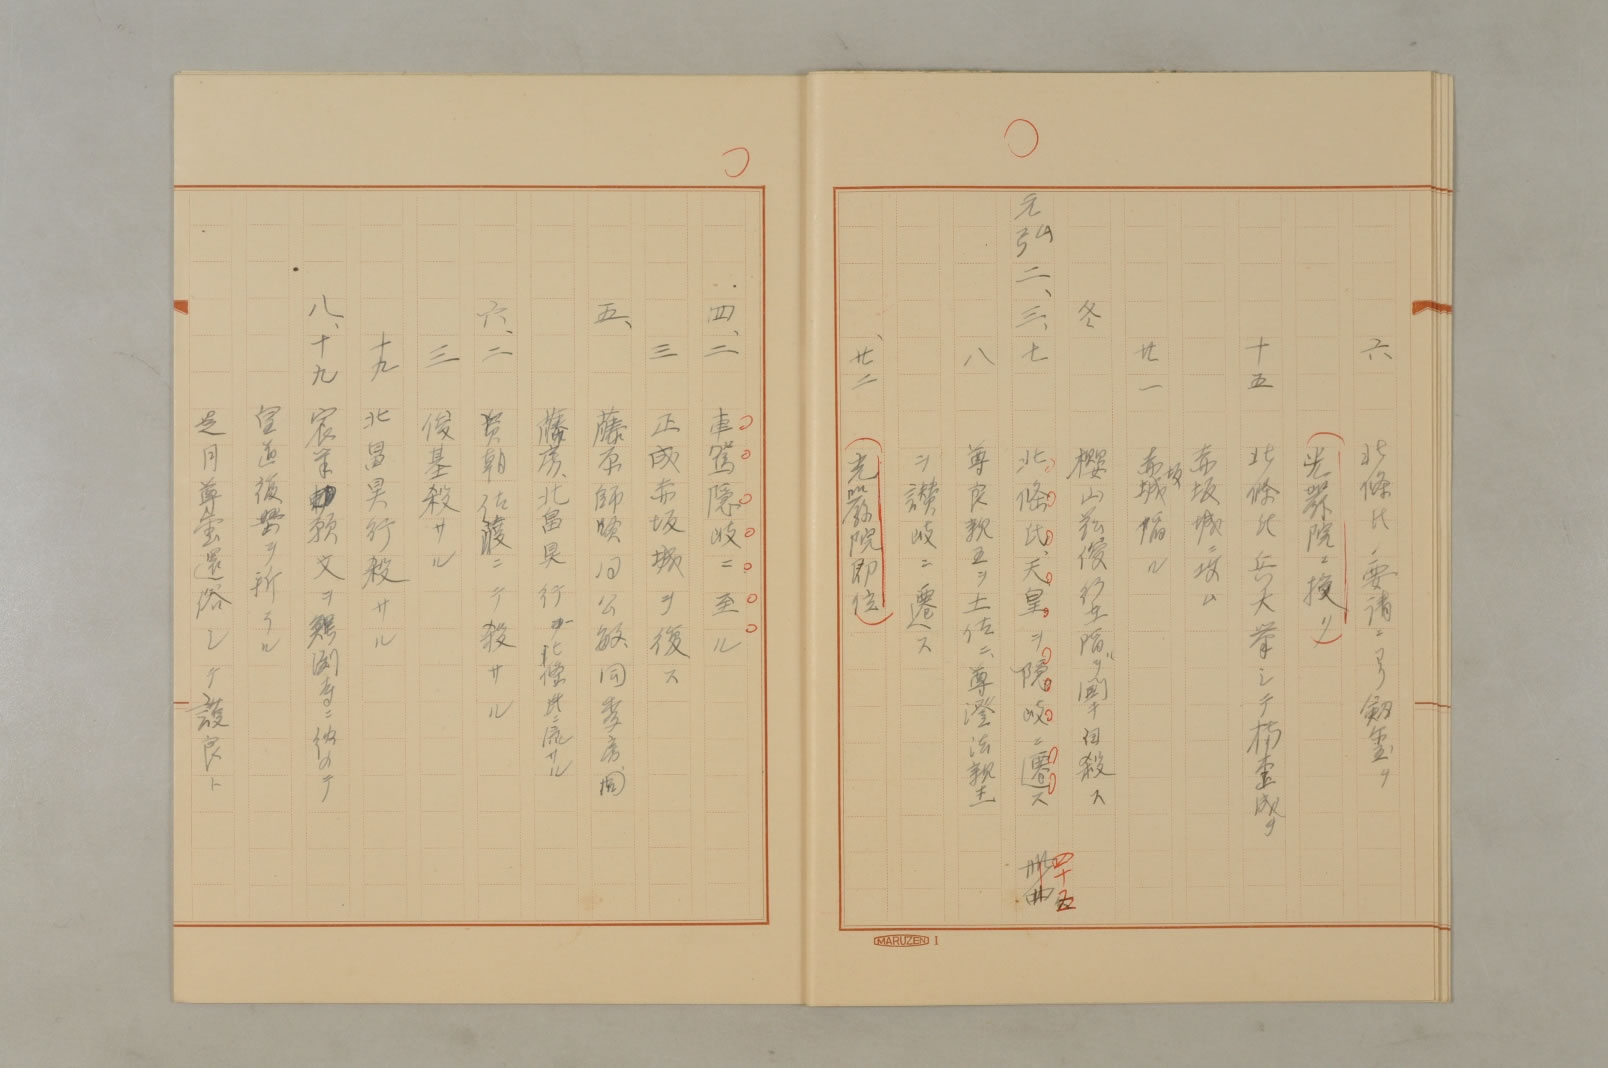 六 北條氏ノ要請ニヨリ剣璽ヲ
光嚴院ニ授ク
十五 北條氏兵大挙シテ楠正成ヲ
赤坂城ニ攻ム
廿一 赤坂城陥ル
冬 櫻山茲俊
元弘二、三、七 北條氏、天皇ヲ隠岐ニ遷ス 四十五
八 尊良親王ヲ土佐ニ、尊澄法親王
ヲ讃岐ニ遷ス
、廿二 光嚴院即位
MARUZEN 1
四、二 車駕隠岐ニ至ル
三 正成赤坂城ヲ復ス
五、 藤原師賢 同公敏 同季房 同
藤房、北畠具行 北條氏ニ流サル
六、二 資朝佐渡ニテ殺サル
三 俊基殺サル
十九 北畠具行殺サル
八、十九 宸筆願文ヲ鰐淵寺ニ納メテ
皇道復興ヲ祈ラル
是月 尊雲還俗シテ護良ト